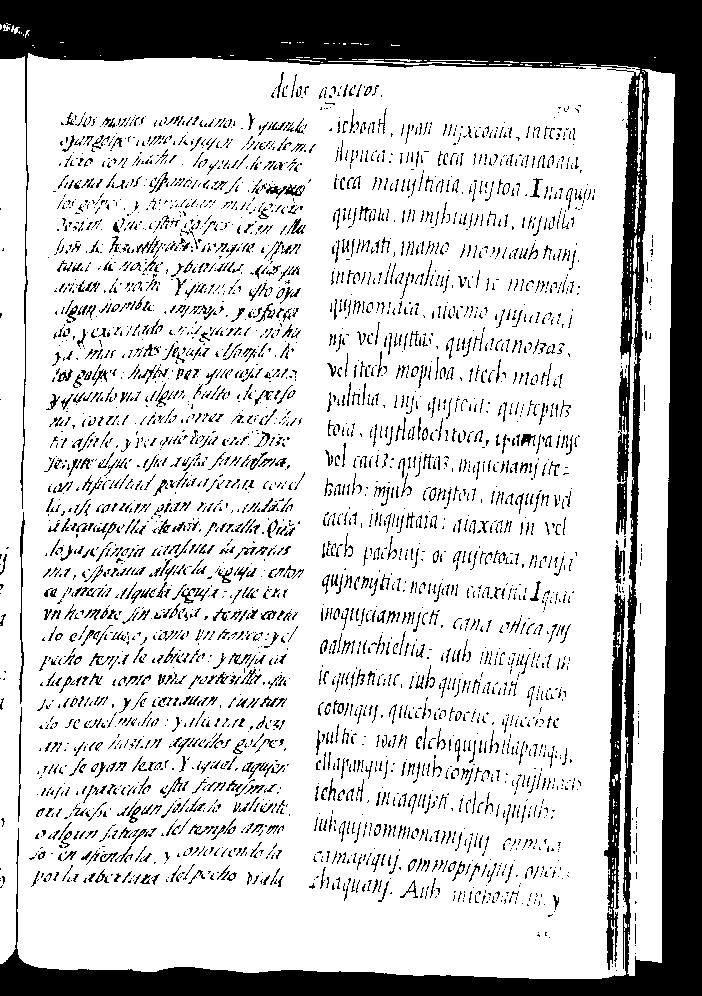 de los agueros.
de los montes comarcanos. Y quando
oyan golpes como de quien hiende ma
dero con hacha, lo qual de noche
suena lexos: espantauan se
los golpes, y tomauan mal aguero
dezian. Que estos golpes eran illu
sion de Tezcatlipuca con que espan
taua de noche, y burlaua, a los que
andan de noche. Y quando esto oya
algun hombre animoso, y esforça
do, y exercitado en la guerra: no hu
ya: mas antes seguja el sonido de
los golpes: hasta ver que cosa era,
y quando via algun bulto de perso
na, corria a todo correr tras el has
ta asirle, y ver que cosa era. Dize
se que el que asia a esta fantasma,
con dificultad podia aferrar con el
la, asi corrian gran rato, andando
a la çacapella de acá, para lla. Quá
do ya se fingia cansada la fantas
ma, esperaua alque la seguja: enton
ce parecia alque la seguja: que era
vn hombre sin cabeça, tenja corta
do el pescueço, como vn tronco: y el
pecho tenja le abierto: y tenja ca
da parte como vna portezilla, que
se abrian, y se cerrauan, juntan
do se en el medio: y al cerrar, dezi
an: que hazian aquellos golpes,
que se oyan lexos. Y aquel, aqujen
auja aparecido esta fantasma:
ora fuesse algun soldado valiente,
o algun satrapa del templo anjmo
so: en asiendola, y conociendola
por la abertura del pecho viale
iehoatl, ipan mjxcoaia, in tezca
tlipuca: injc teca mocacaiaoaia,
teca maujltiaia, qujtoa. Inaqujn
qujttaia, in mjhiujntia, injiollo
qujmati, inamo momauhtianj,
intonallapaliuj, vel ic momoda:
qujmomaca, aiocmo
njc vel qujttaz, qujtlacanotzaz,
vel itech mopiloa, itech motla
paltilia, injc qujtoca: qujteputz
toca, qujtlalochtoca, ipampa injc
vel caciz: qujttaz, in quenamj ite-
tzauh: injuh conjtoa, inaqujn vel
cacia, inqujttaia: aiaxcan in vel
itech pachiuj: oc qujtotoca, noujā
qujnenjtia: noujan caaxitia I qoac
inoqujciammjcti, cana oticaquj
oalmuchieltia: auh inicqujtta in
ic qujtzticac, iuhqujntlacatl quech
cotonquj, quechcotoctic, quechte
pultic: ioan elchiqujuhtlapanquj,
ellapanquj: injuh conjtoa: qujlmach
iehoatl, incaqujzti, ielchiqujuh:
iuhqujnommonamjquj onmoca
camapiquj, ommopipiquj,
tzaquanj. Auh iniehoatl. in, y